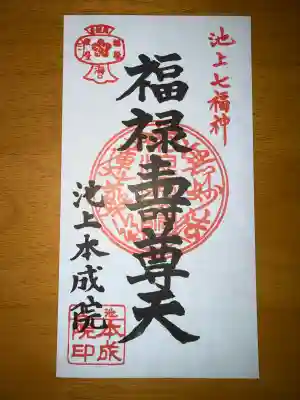 池上七福神
福禄壽尊天
池上本成院
池上
本成
院印